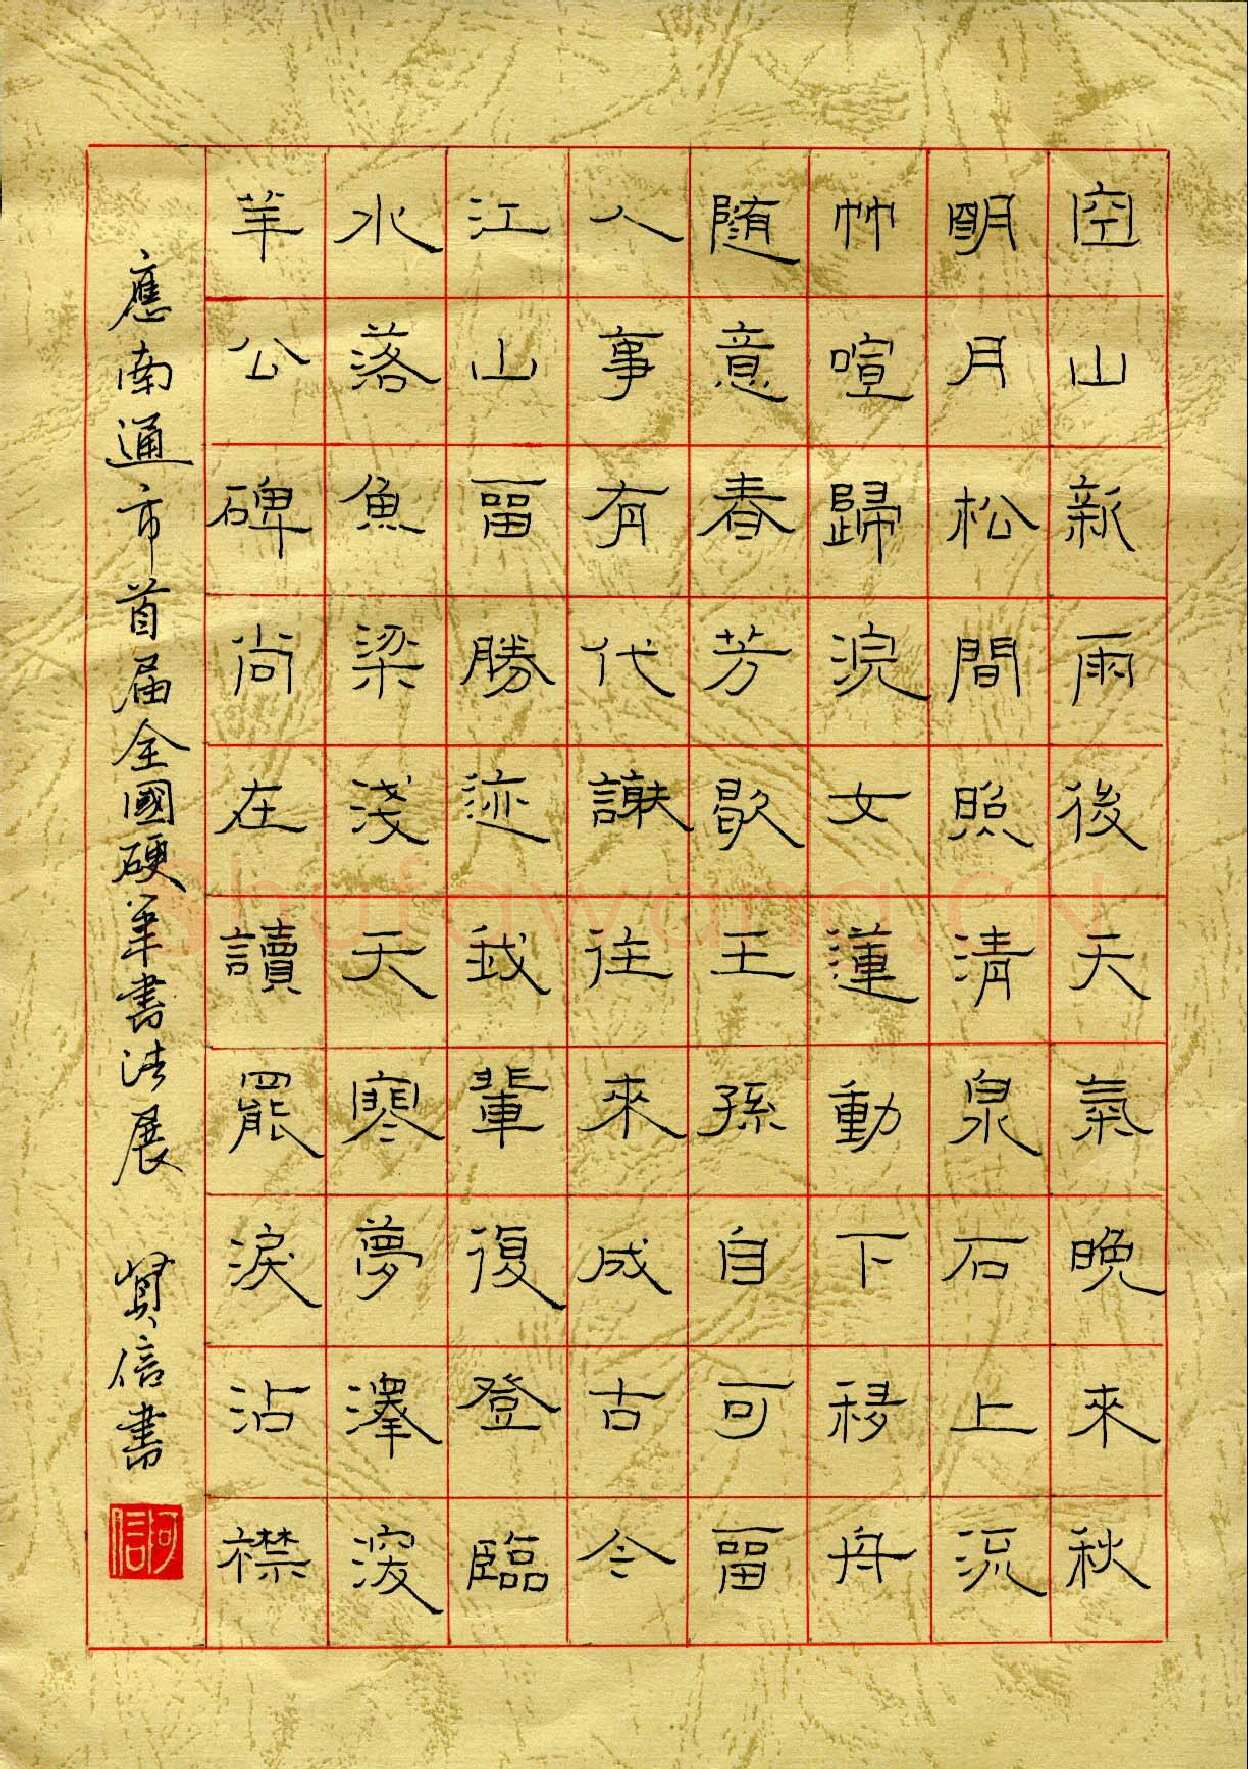 空山新雨後天氣晚來秋
明月松間照清泉石上流
竹喧歸浣女蓮動下移舟
随意春芳歇王孫自可畱
人事有代謝往來成古今
江山畱勝迹我輩復登臨
水落魚梁淺天寒夢澤深
羊公碑尚在讀罷淚沾襟
應南通市首届全國硬筆書法展 賢信書
Shufawang.CN